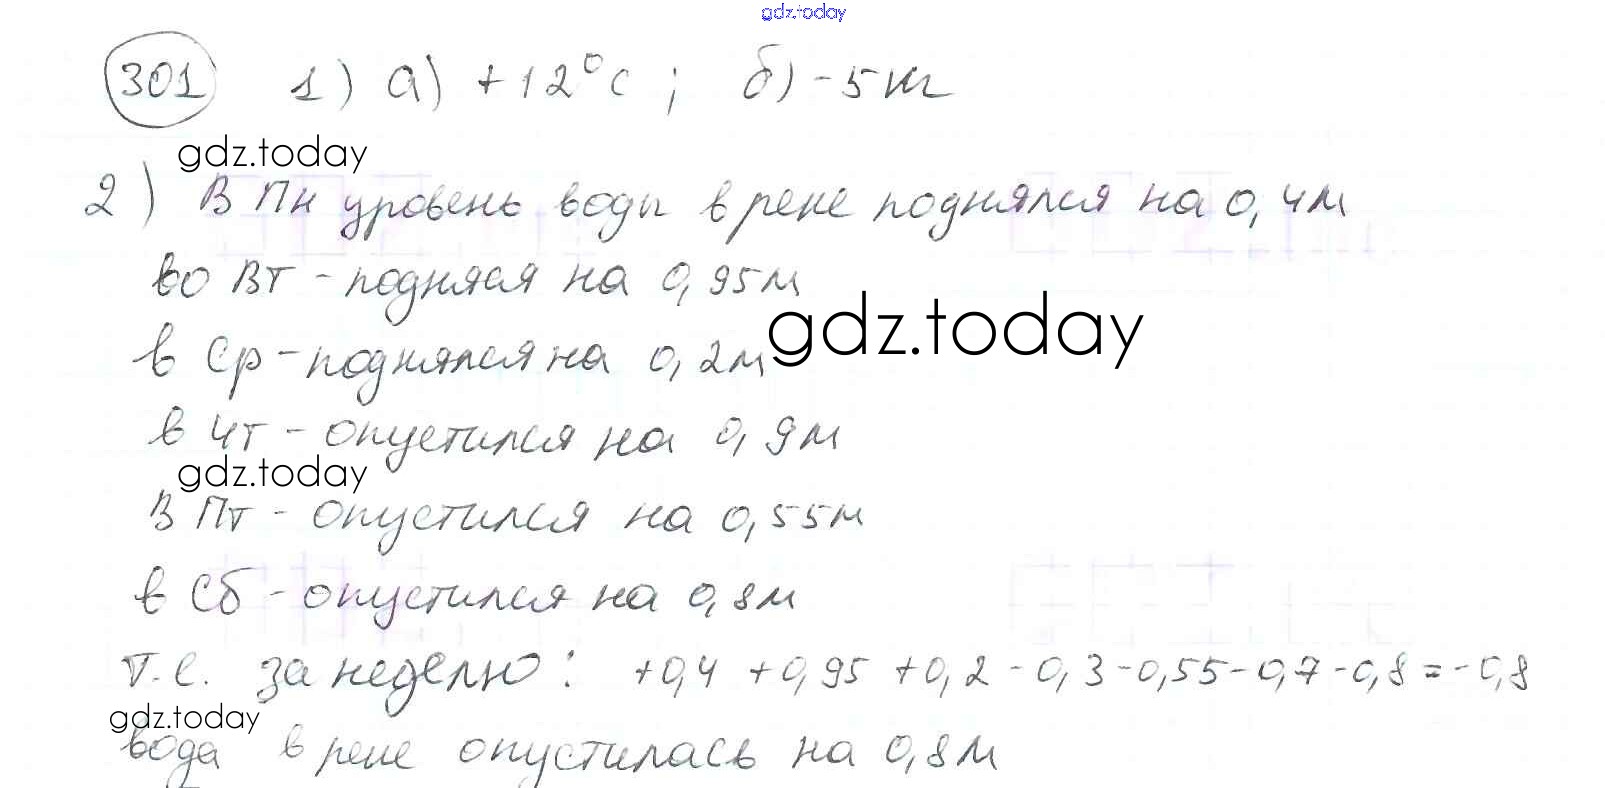 gdz.today
301 1) а) +12°С; б) -5 кг
gdz.today
2) В Пн уровень воды в реке поднялся на 0,4м
во Вт - поднялся на 0,95м
в Ср - поднялся на 0,2м
gdz.today
в Чт - опустился на 0,9м
gdz.today
В Пт - опустился на 0,55м
в Сб - опустился на 0,8м
т.е. за неделю: +0,4 +0,95 +0,2 -0,3 -0,55 -0,7 -0,8 = -0,8
gdz.today
вода в реке опустилась на 0,8м